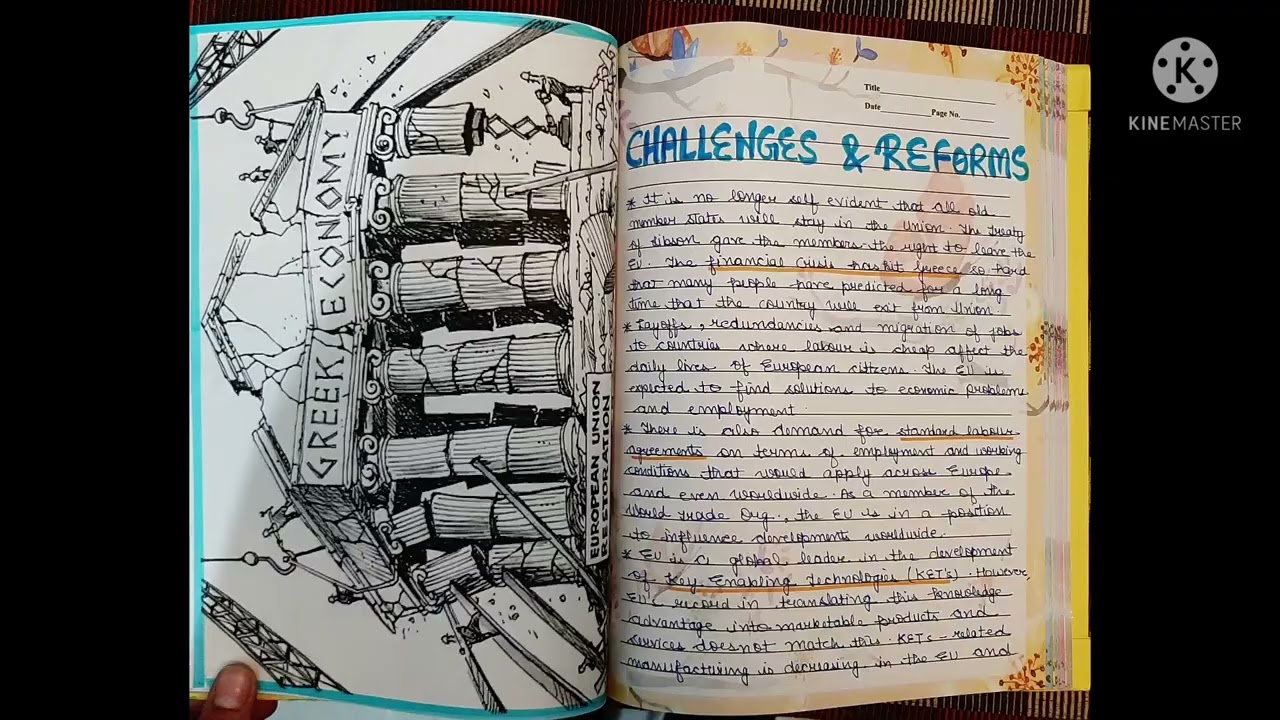 GREEK ECONOMY
EUROPEAN UNION
RESTORATION
Title
Date Page No.
CHALLENGES & REFORMS
* It is no longer self evident that all old
member states will stay in the union. The treaty
of Libson gave the members the right to leave the
EU. The financial crisis has hit Greece so hard
that many people have predicted for a long
time that the country will exit from Union.
* Layoffs, redundancies and migration of jobs
to countries where labour is cheap affect the
daily lives of European citizens. The EU is
expected to find solutions to economic problems
and employment.
* There is also demand for standard labour
agreements on terms of employment and working
conditions that would apply across Europe
and even worldwide. As a member of the
World Trade Org., the EU is in a position
to influence developments worldwide.
* EU is a global leader in the development
of Key Enabling Technologies (KET's). However,
EU's record in translating this knowledge
advantage into marketable products and
services doesnot match this. KETs-related
manufacturing is decreasing in the EU and
K
KINEMASTER